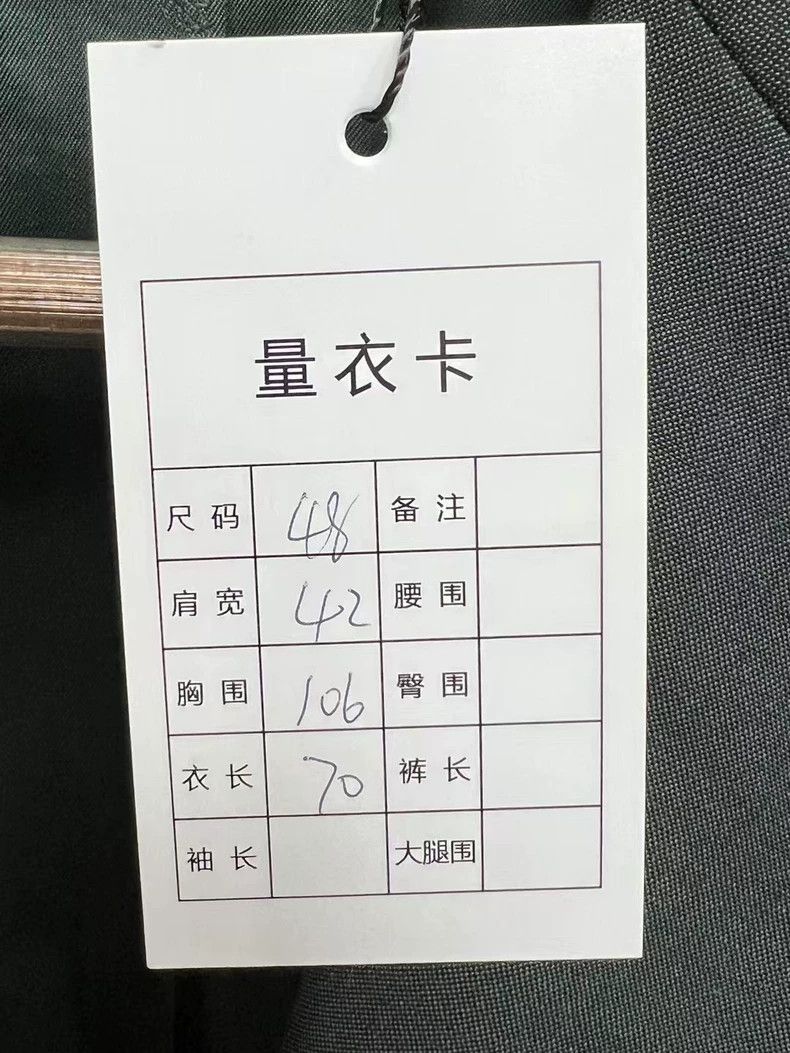 量衣卡
尺码 48 备注
肩宽 42 腰围
胸围 106 臀围
衣长 70 裤长
袖长 大腿围